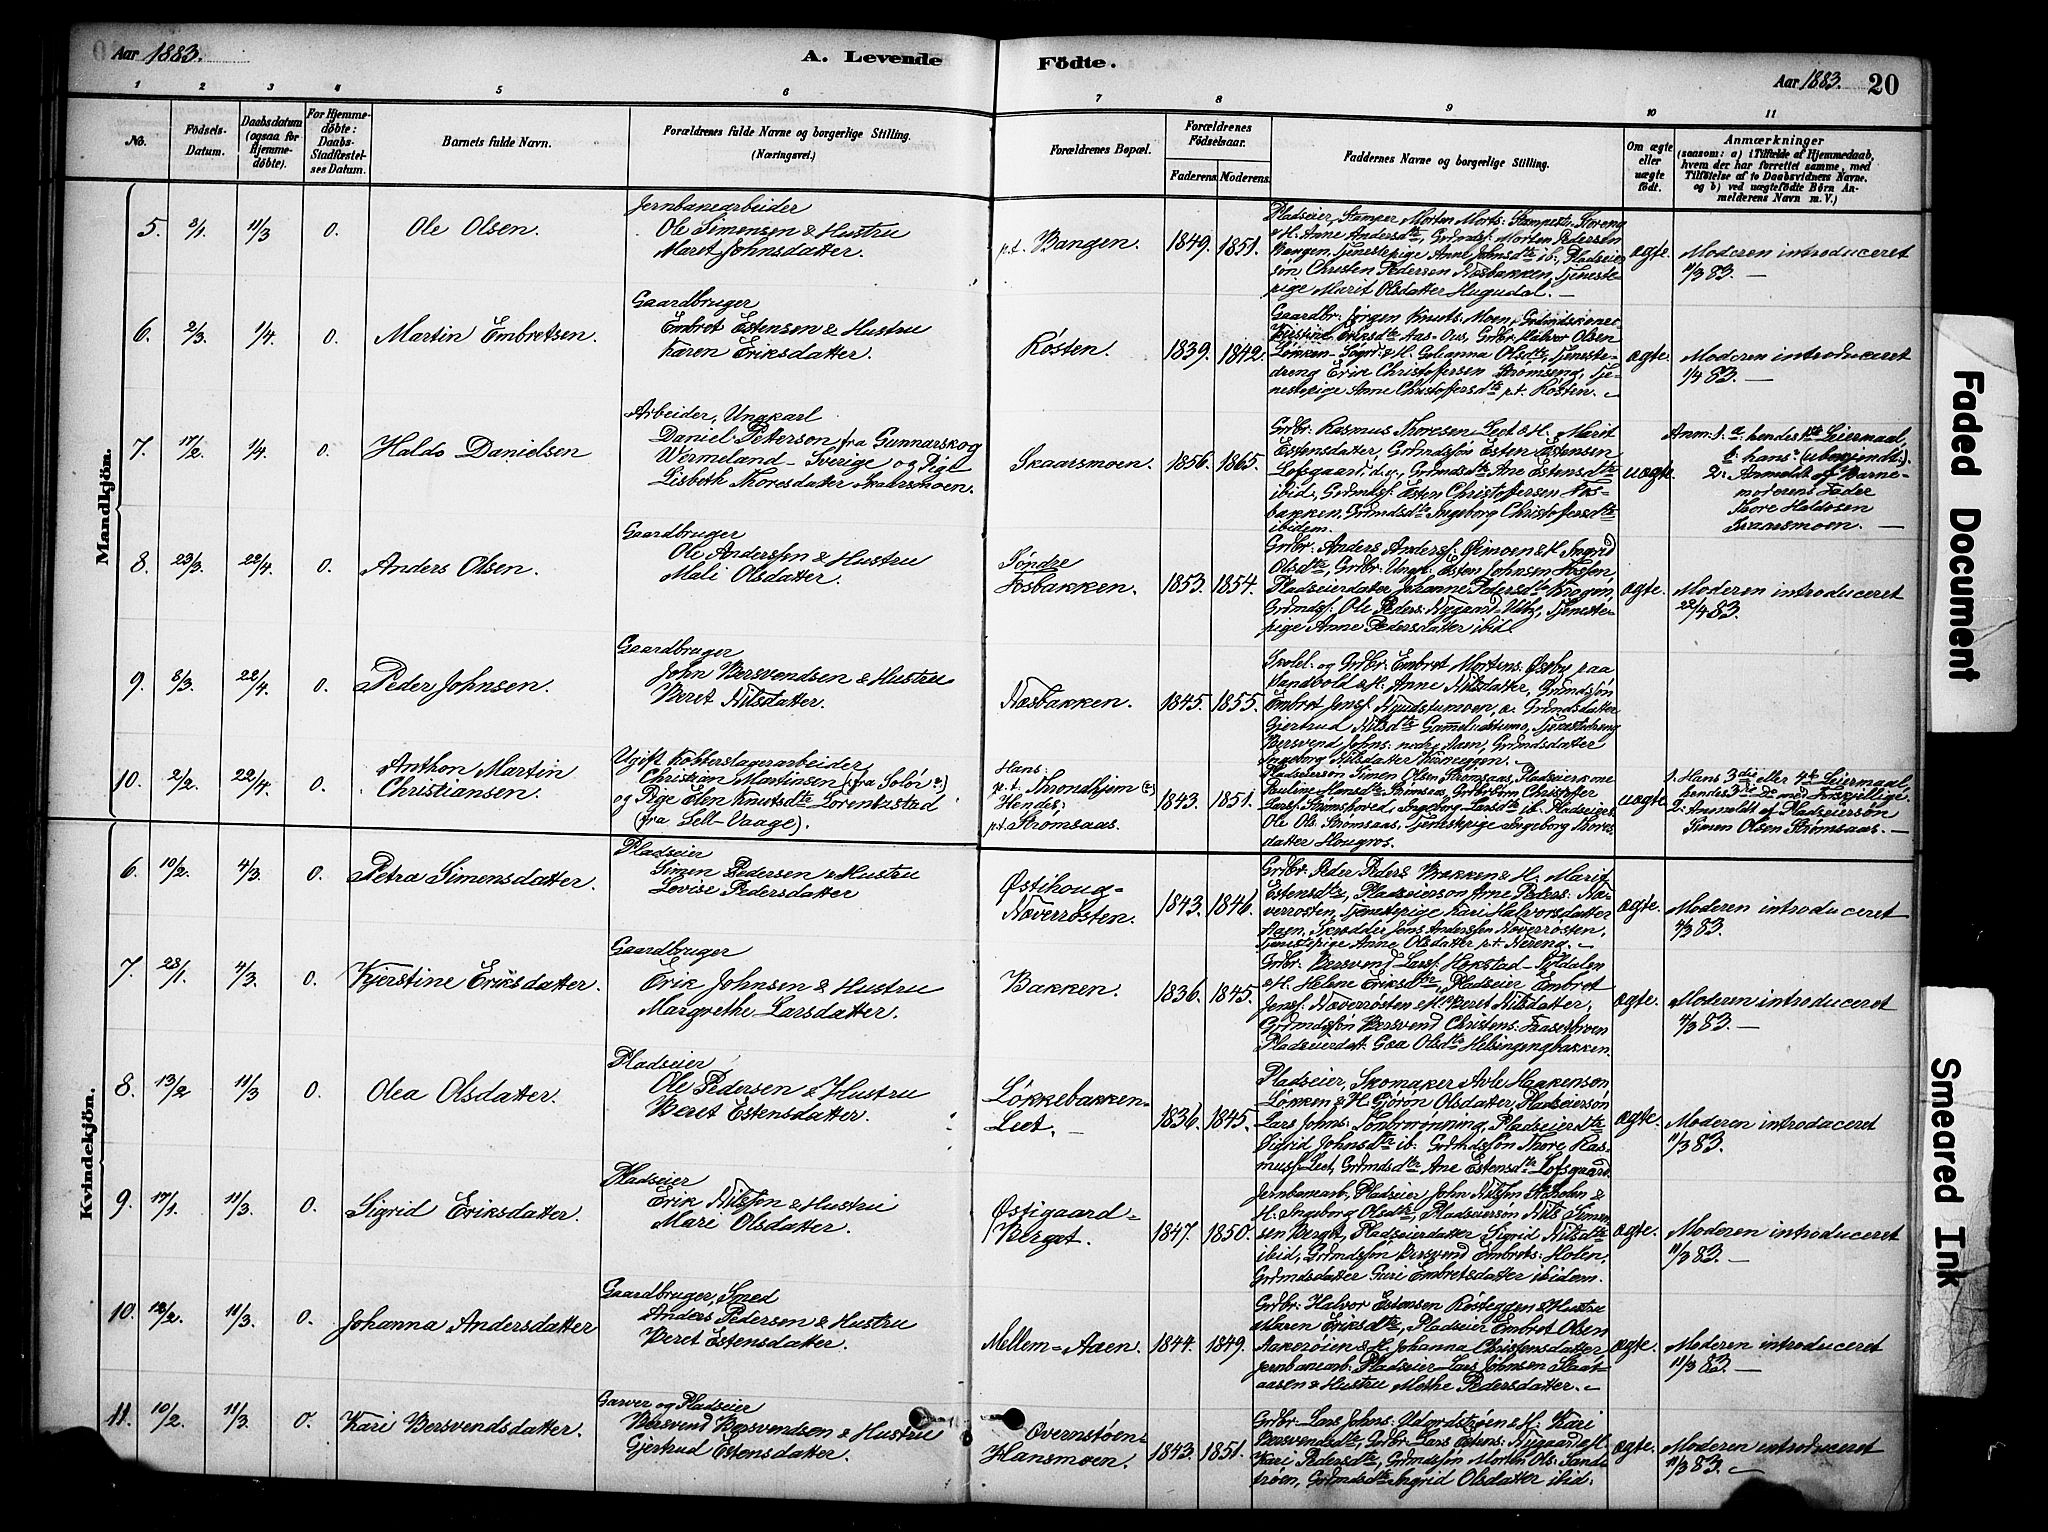 Aar 1883.
A. Levende Födte.
Aar 1883. 20
1 2 3 4 5 6 7 8 9 10 11
No.
Födsels-
Datum.
Daabsdatum
(ogsaa for
Hjemme-
döbte).
For Hjemme-
döbte:
Daabs-
Stadfæstel-
ses Datum.
Barnets fulde Navn.
Forældrenes fulde Navne og borgerlige Stilling.
(Næringsvei.)
Forældrenes Bopæl.
Forældrenes
Födselsaar.
Faderens. Moderens.
Faddernes Navne og borgerlige Stilling.
Om ægte
eller
uægte
födt.
Anmærkninger
(saasom: a) i Tilfælde af Hjemmedaab,
hvem der har forrettet samme, med
Tilföielse af to Daabsvidners Navne.
og b) ved uægtefödte Börn An-
melderens Navn m. V.)
Mandkjön.
5. 2/1 11/3 0. Ole Olsen.
Jernbanearbeider
Ole Simensen & Hustru
Marit Johnsdatter.
p.t. Bangen. 1849. 1851.
Pladseier, Stamper Morten Morts: Stampestu-Koreng
& H. Anne Andersdtr, Grdmds. Morten Pedersen
Bangen, Tjenestepige Anne Johnsdtr ib., Pladseier
søn Christen Pedersen Næsbakken, Tjeneste-
pige Marit Olsdatter Hugudal. —
ægte. Moderen introduceret
11/3 83. —
6. 2/3 1/4 0. Martin Embretsen.
Gaardbruger
Embret Estensen & Hustru
Karen Eriksdatter.
Røsten. 1839. 1842.
Gaardbr: Jørgen Knuts: Moen, Grdmdskone
Kjerstine Eriksdtr Aas-Øus, Grdbr: Halvor Olsen
Løkken-Søgrd: & H. Johanna Olsdtr, Tjeneste-
dreng Erik Christofersen Strømseng, Tje-
nestepige Anne Christofersdtr p.t. Røsten.
ægte Moderen introduceret
1/4 83. —
7. 17/2 1/4 0. Haldo Danielsen
Arbeider, Ungkarl
Daniel Petterson fra Gunnarskog
Wermeland-Sverige og Pige
Lisbeth Thoresdatter Skaarsmoen.
Skaarsmoen. 1856. 1865.
Grdbr: Rasmus Thoresen Leet & H. Marit
Estensdatter, Grdmdsøn Esten Estensen
Lofsgaard d.y., Grdmdsdtr Ane Estensdtr
ibid, Grdmds: Esten Christoffersen Fos-
bakken, Grdmdsdtr Ingeborg Christofersdtr
ibidem.
uægte. Anm: 1. a: hendes 1ste Leiermaal,
b: hans? (ubekjendt:).
2: Anmeldt af Barne-
moderens Fader
Thore Haldosen
Skaarsmoen. —
8. 23/3 22/4 0. Anders Olsen.
Gaardbruger
Ole Anderssen & Hustru
Mali Olsdatter.
Søndre
Fosbakken. 1853. 1854.
Grdbr: Anders Anders: Øimoen & H. Ingrid
Olsdtr, Grdbr: Ungk: Esten Johnsen Fossen,
Pladseierdatter Johanne Pedersdtr Krogen,
Grdmds: Ole Peders: Nygaard-Utby, Tjeneste-
pige Anne Pedersdatter ibid.
ægte. Moderen introduceret
22/4 83.
9. 8/3 22/4 0. Peder Johnsen.
Gaardbruger
John Bersvendsen & Hustru
Beret Nilsdatter.
Næsbakken. 1845. 1855.
Skolel: og Grdbr: Embret Mortens: Øsby paa
Vandbold & H. Anne Nilsdatter, Grdmdsøn
Embret Jens: Njudstumoen, Grdmdsdatter
Gjertrud Nilsdtr Gammeludstumo, Tjenestedreng
Bersvend Johns: nedre Aaen, Grdmdsdatter
Ingeborg Nilsdatter
10. 2/2 22/4 0. Anthon Martin
Christiansen.
Ugift Kobberslagerarbeider
Christian Martinsen (fra Solør?)
og Pige Elen Knutsdtr Lorentzstad
(fra Sell-Vaage).
Hans:
p.t. Throndhjem (?)
Hendes:
p.t. Strømsaas.
1843. 1851.
Pladseiersøn Simen Olsen Strømsaas, Pladseierkone
Pauline Hansdtr Strømsaas, Grdbrsøn Christofer
Lars: Strømshored, Ingeborg Larsdtr ib. Pladseiges:
Ole Ols: Strømsaas, Tjenestepige Ingeborg Thores
datter Hougros.
uægte 1. Hans 3die eller 4de Leiermaal,
hendes 3die Do med Forskjellige.
2: Anmeldt af Pladseiersøn
Simen Olsen Strømsaas. —
Kvindekjön.
6. 10/2 4/3 0. Petra Simensdatter.
Pladseier
Simen Pedersen & Hustru
Lovise Pedersdatter.
Østihoug-
Næverrøsten. 1843. 1846.
Grdbr: Peder Peders: Bakken & H. Marit
Estensdtr, Pladseiersøn Arne Peders: Næ-
verrosten, Tjenestepige Kari Halvorsdatter
Aaen, Skrædder Jens Anderssøn Næverrosten,
Tjenestepige Anne Olsdatter p.t. Nereng. —
ægte. Moderen introduceret
4/3 83.
7. 23/1 4/3 0. Kjerstine Eriksdatter.
Gaardbruger
Erik Johnsen & Hustru
Margrethe Larsdatter.
Bakken. 1836. 1845.
Grdbr: Bersvend Lars: Hokstad-Tyldalen
& H. Helene Eriksdtr, Pladseier Embret
Jens: Næverrösten & H. Beret Nilsdatter,
Grdmdsøn Bersvend Christens: Fraasetmoen
Pladseierdat: Goa Olsdtr Helsingengbakken.
ægte. Moderen introduceret
4/3 83. —
8. 13/2 11/3 0. Olea Olsdatter.
Pladseier
Ole Pedersen & Hustru
Beret Estensdatter.
Løkkebakken-
Leet. — 1836. 1845.
Pladseier, Skomaker Avle Haakenson
Løkken & H. Gjørøn Olsdatter, Pladseiersøn
Lars Johns: Tønbronning, Pladseierdtr
Sigrid Johnsdtr ib: Grdmdsøn Thore Ras-
mus: Leet, Grdmdsdtr Ane Estensdtr Lofsgaard.
ægte. Moderen introduceret
11/3 83. —
9. 17/1 11/3 0. Sigrid Eriksdatter.
Pladseier
Erik Nilssen & Hustru
Mari Olsdatter.
Østigaard-
Berget. 1847. 1850.
Jernbanearb, Pladseier John Nilssen Haaolen &
H. Ingeborg Olsdtr, Pladseiersøn Nils Simen-
sen Berget, Pladseierdatter Sigrid Nilsdtr
ibid, Grdmdsøn Bersvend Embrets: Holen,
Grdmdsdatter Guri Embretsdatter ibidem.
ægte. Moderen introduceret
11/3 83. —
10. 12/2 11/3 0. Johanna Andersdatter
Gaardbruger, Smed
Anders Pederson & Hustru
Beret Estensdatter.
Mellem-Aaen. 1844. 1849.
Grdbr: Halvor Estensen Røsteggen & Hustru
Maren Eriksdtr, Pladseier Embret Olsen
Aakerøien & H. Johanna Christensdatter,
Jernbanearb: Pladseier Lars Johnsen Staat-
aasen & Hustru Methe Pedersdatter. —
ægte. Moderen introduceret
11/3 83. —
11. 10/2 11/3 0. Kari Bersvendsdatter.
Garver og Pladseier
Bersvend Bersvendson & Hustru
Gjertrud Estensdatter.
Overnstøen-
Hansmoen. 1843. 1851.
Grdbr: Lars Johns: Udgrdstrøen & H. Kari
Bersvendsdtr, Grdbr: Lars Estens: Nygaard & H.
Kari Pedersdtr, Grdmdsøn Morten Ols: Sande
trøen, Grdmdsdtr Ingrid Olsdatter ibid.
ægte. Moderen introduceret
11/3 83. —
Faded Document
Smeared Ink